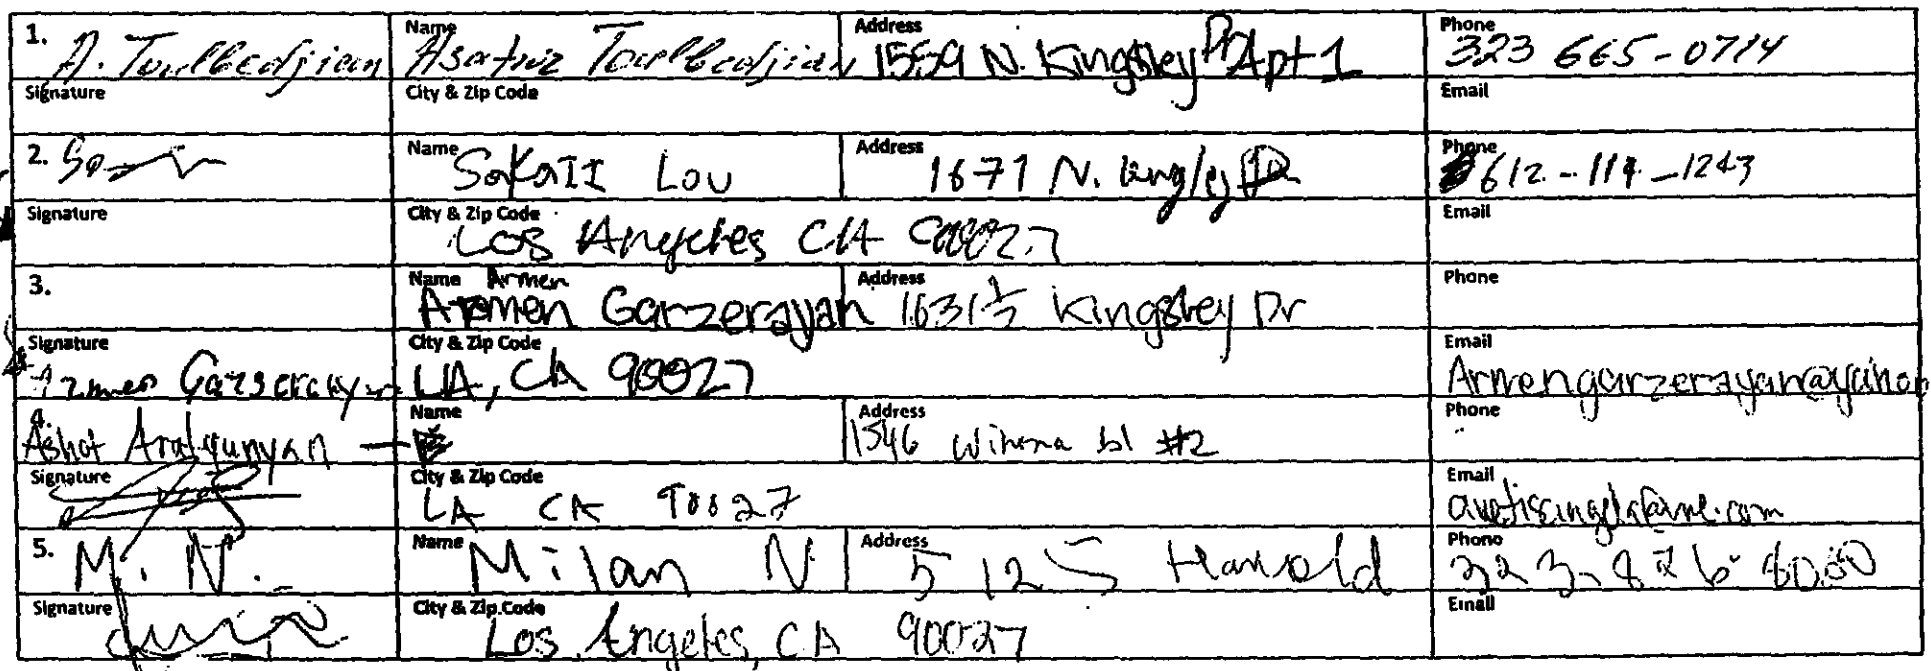 1. A. Toulbedjian Name Asatur Toulbedjian Address 1559 N. Kingsley Dr Apt 1 Phone 323 665-0714
Signature City & Zip Code Email
2. Name SakaII Lou Address 1671 N. Dr Phone 612-114-1243
Signature City & Zip Code Los Angeles CA 90027 Email
3. Name Armen Armen Garzerayan Address 1631 1/2 Kingsley Dr Phone
Signature City & Zip Code LA, CA 90027 Email Armengarzerayan@yahoo
4. Ashot Name Address 1546 Winona bl #2 Phone
Signature City & Zip Code LA CA 90027 Email
5. M. N. Name Milan N Address 5125 Harold Phone
Signature City & Zip Code Los Angeles, CA 90027 Email